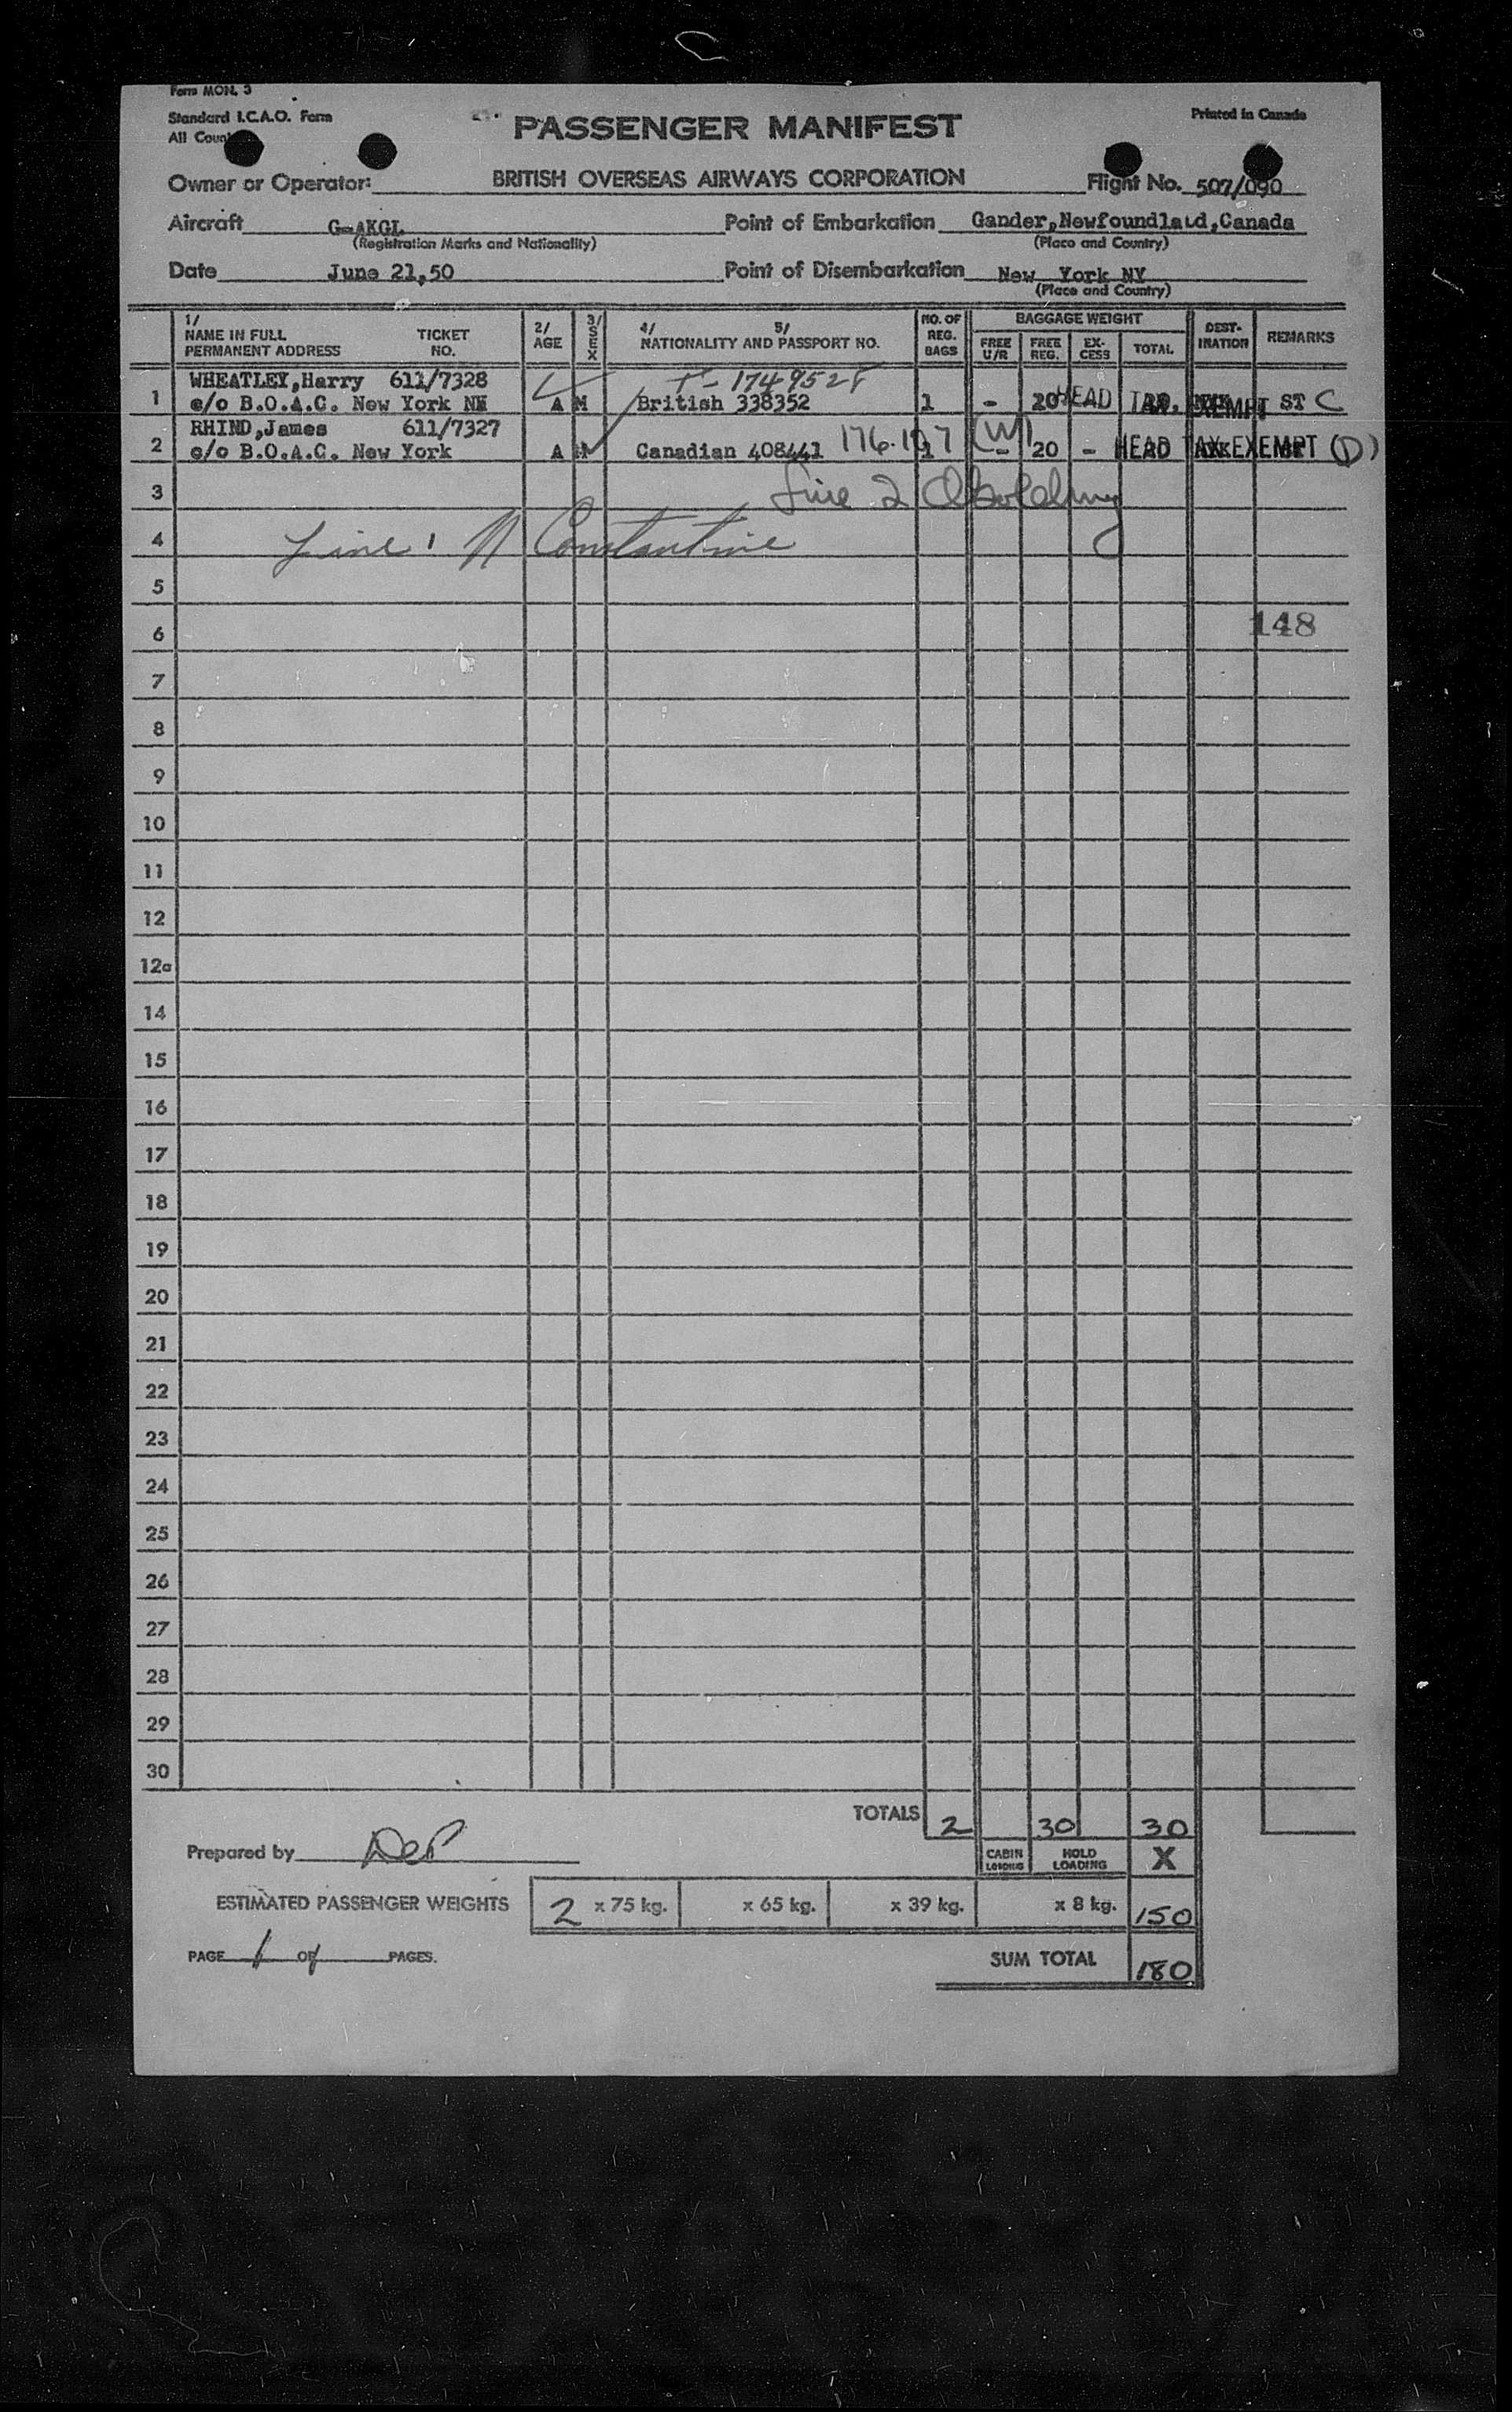 Form MON. 3
Standard I.C.A.O. Form
All Coun
PASSENGER MANIFEST
Printed in Canada
Owner or Operator: BRITISH OVERSEAS AIRWAYS CORPORATION Flight No. 507/090
Aircraft G-AKGL Point of Embarkation Gander,Newfoundland,Canada
(Registration Marks and Nationality) (Place and Country)
Date June 21,50 Point of Disembarkation New York NY
(Place and Country)
1/ NAME IN FULL PERMANENT ADDRESS TICKET NO. 2/ AGE 3/ SEX 4/ 5/ NATIONALITY AND PASSPORT NO. NO. OF REG. BAGS BAGGAGE WEIGHT FREE U/R FREE REG. EX-CESS TOTAL DEST-INATION REMARKS
WHEATLEY,Harry 611/7328
1 c/o B.O.A.C. New York NY A M British 338352 1 - 20 HEAD TAX EXEMPT ST C
RHIND,James 611/7327
2 c/o B.O.A.C. New York A M Canadian 408441 176.107 (W) 1 - 20 - HEAD TAX EXEMPT (D)
3 Line 2
4 Line 1 N Constantine
5
6 148
7
8
9
10
11
12
12a
14
15
16
17
18
19
20
21
22
23
24
25
26
27
28
29
30
TOTALS 2 30 30
Prepared by CABIN LOADING HOLD LOADING X
ESTIMATED PASSENGER WEIGHTS 2 x 75 kg. x 65 kg. x 39 kg. x 8 kg. 150
PAGE 1 OF 1 PAGES. SUM TOTAL 180